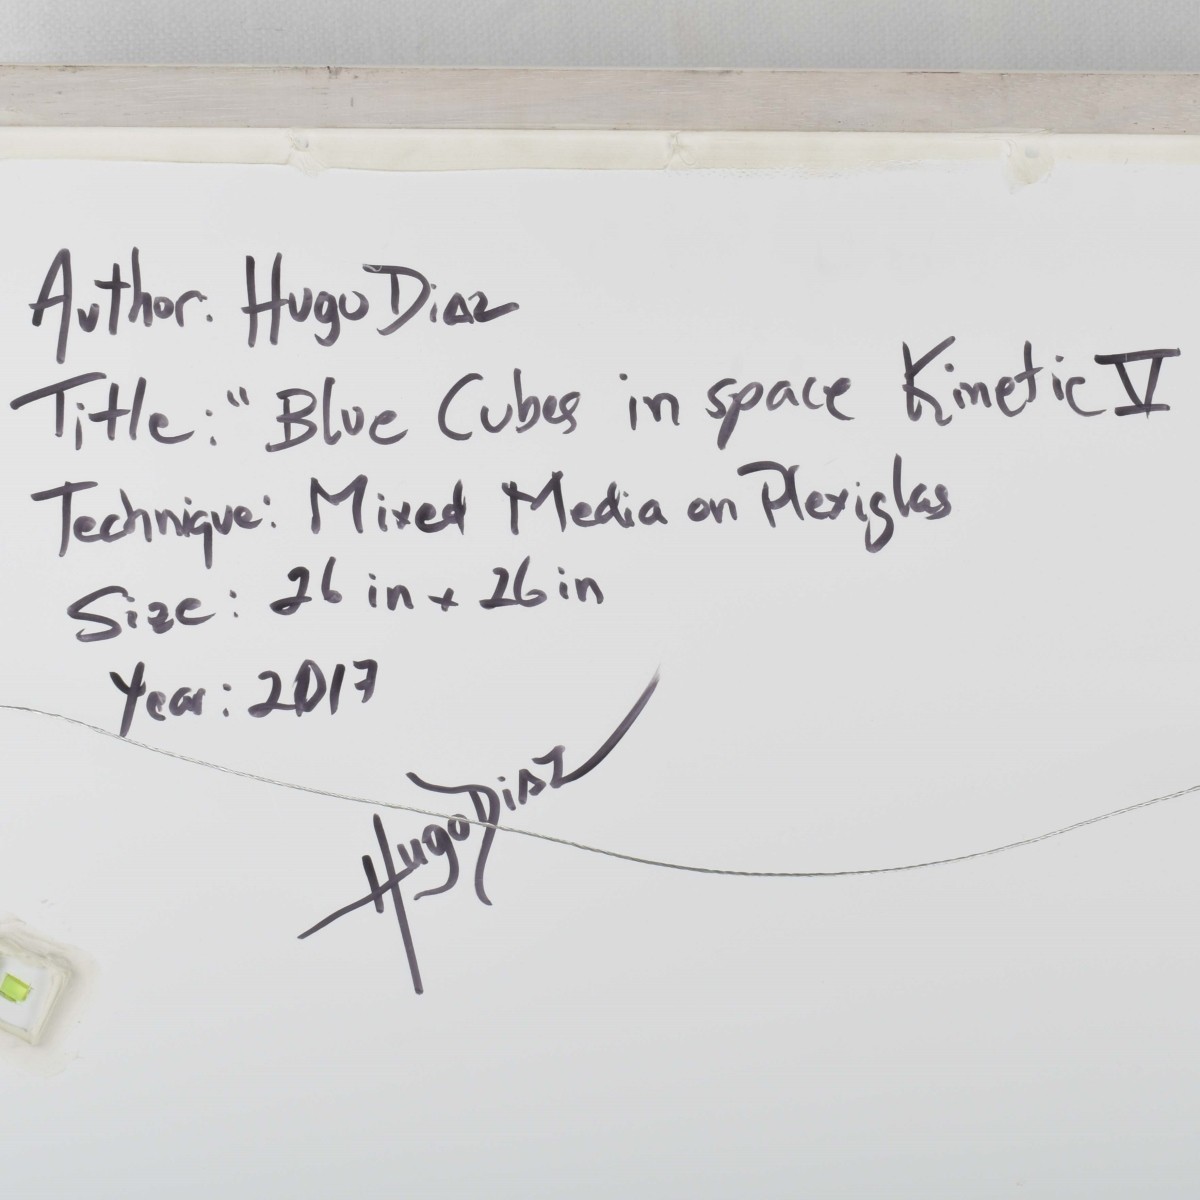 Author: Hugo Diaz
Title: "Blue Cubes in space Kinetic V
Technique: Mixed Media on Plexiglas
Size: 26 in x 26 in
Year: 2017
Hugo Diaz